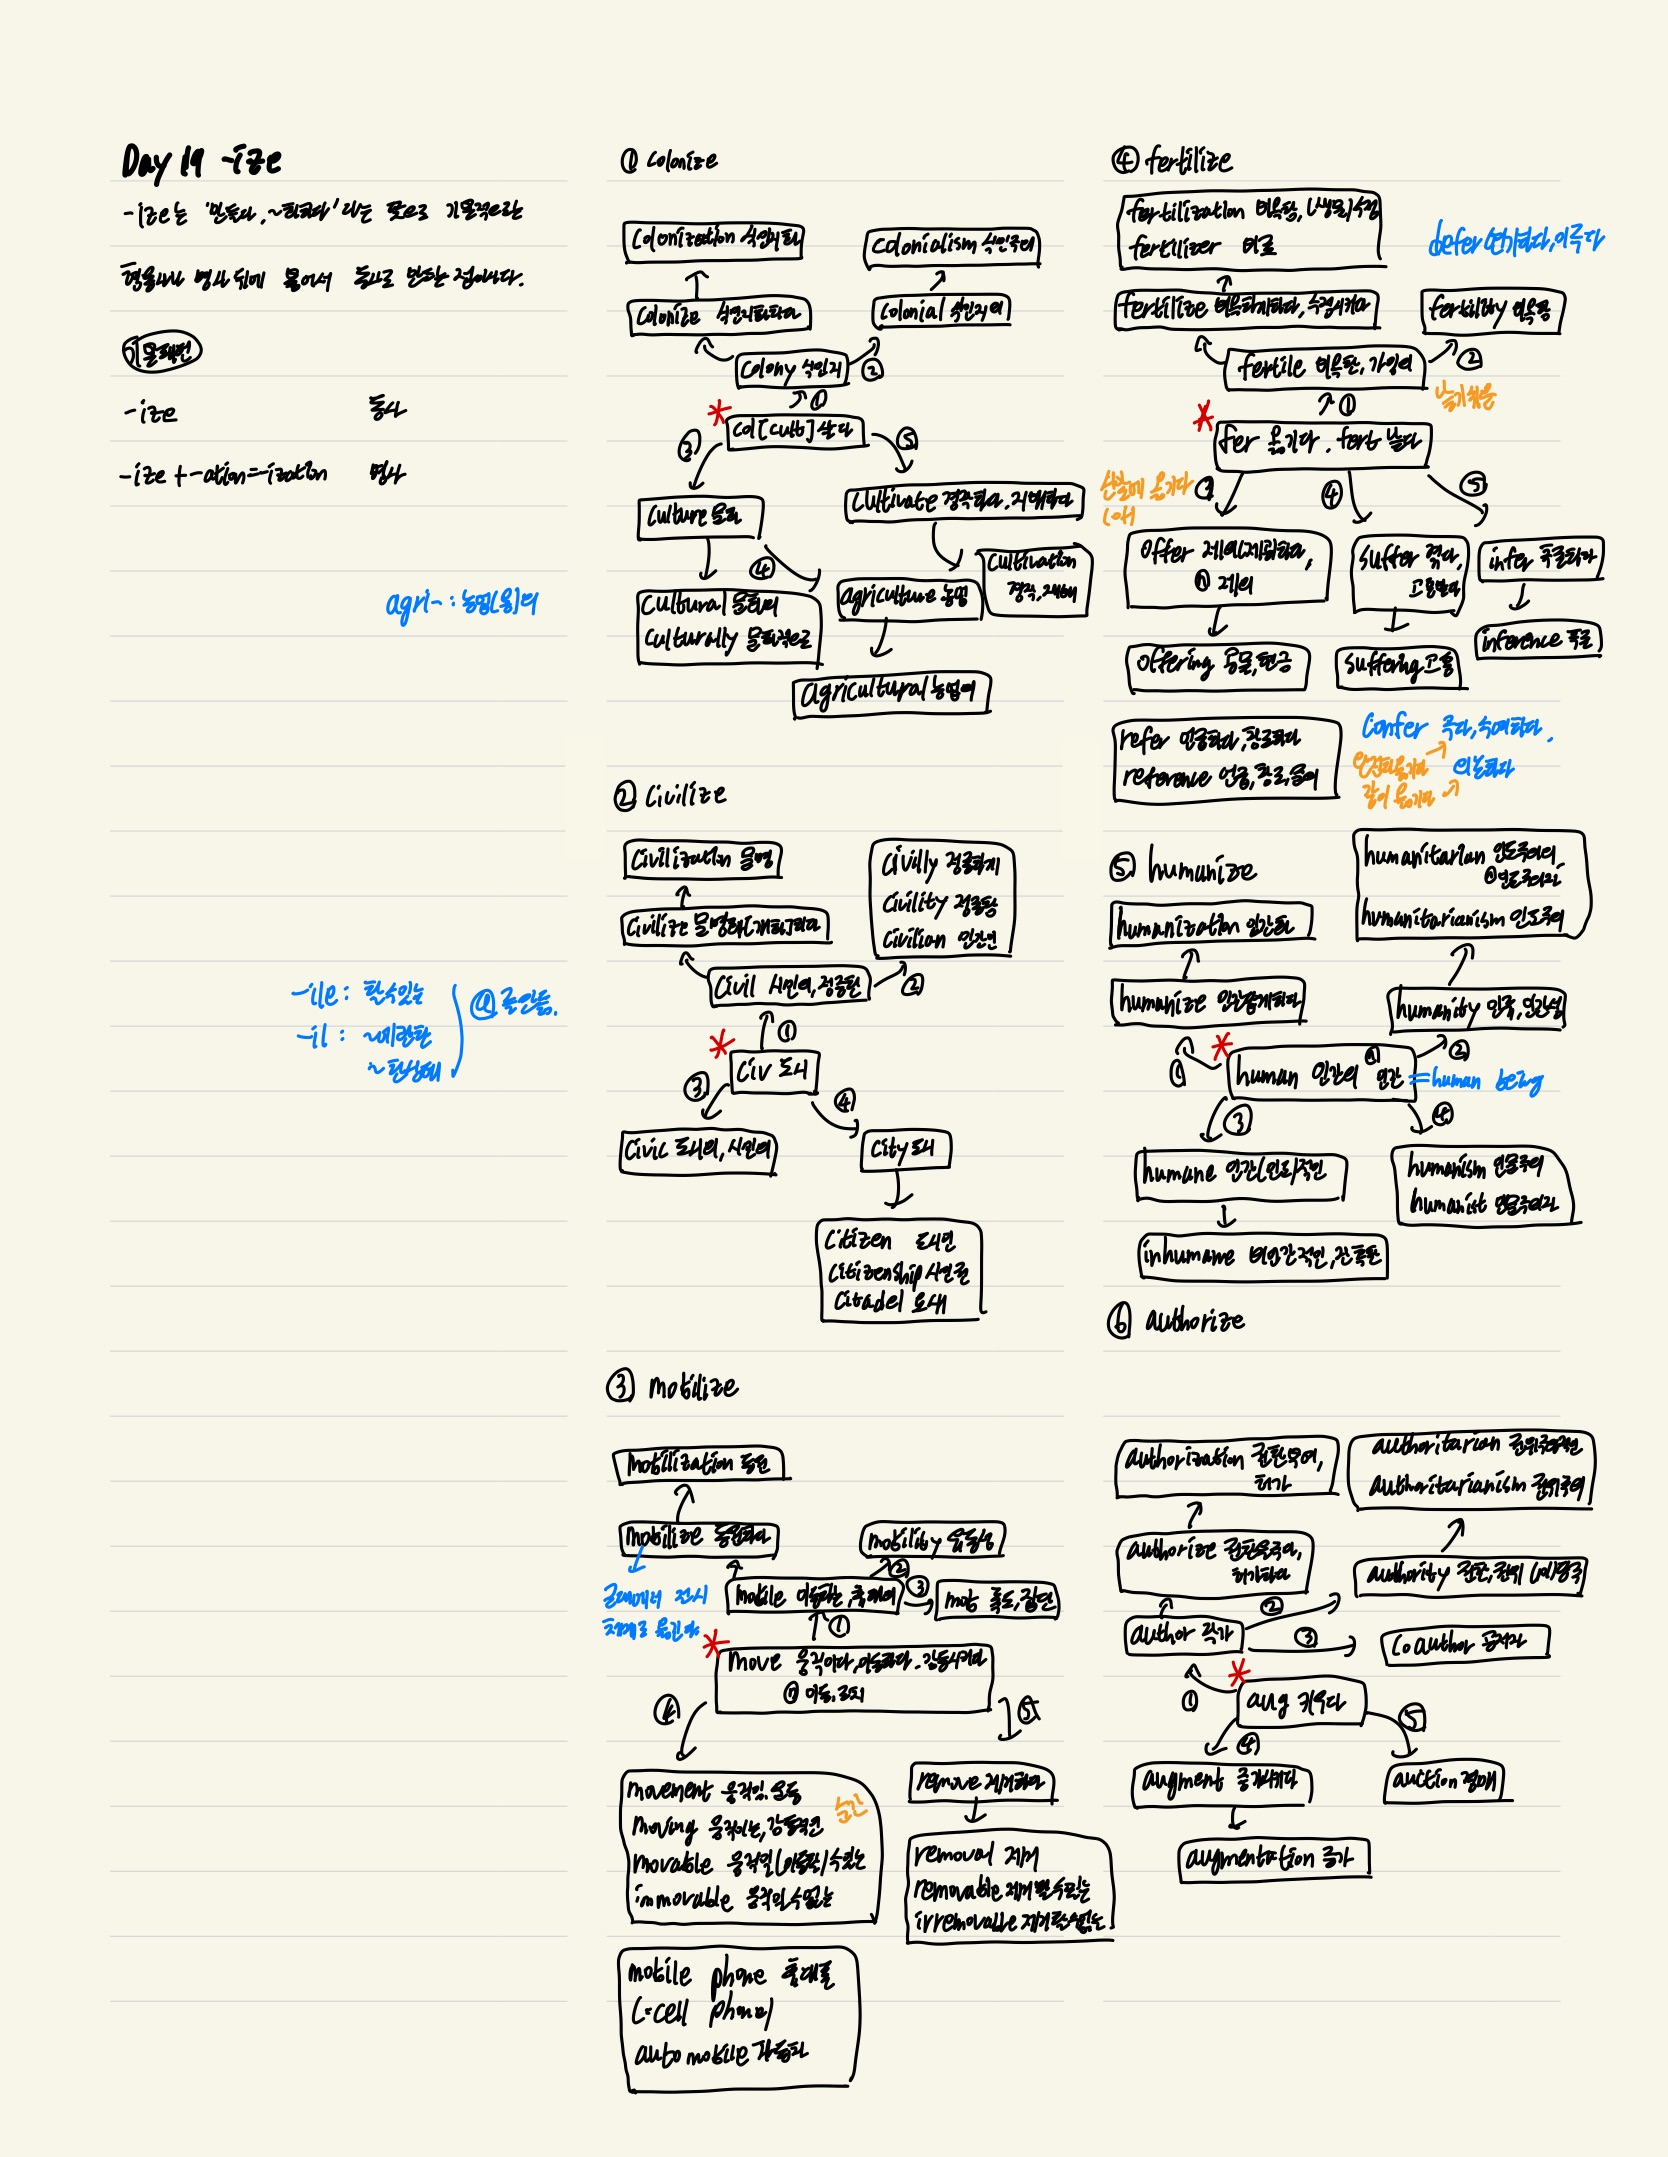 Day 19 -ize
-ize는 '만들다, ~화하다'라는 뜻으로 기본적으로는
형용사나 명사 뒤에 붙어서 동사로 만드는 접미사다.
-ize 동사
-ize + -ation = -ization 명사
agri-: 농업(용)의
-ile: 할수있는
-il: ~에 관한
~한 상태
① colonize
colonization 식민지화
colonialism 식민주의
colonize 식민지화하다
colonial 식민지의
colony 식민지 ②
①
col[cult] 살다
③ ⑤
culture 문화
cultivate 경작하다, 재배하다
④
cultivation
경작, 재배
cultural 문화의
culturally 문화적으로
agriculture 농업
agricultural 농업의
② civilize
civilization 문명
civilly 정중하게
civility 정중함
civilian 민간인
civilize 문명화[개화]하다
civil 시민의, 정중한 ②
①
civ 도시
③ ④
civic 도시의, 시민의
city 도시
citizen 도시민
citizenship 시민권
citadel 요새
③ mobilize
mobilization 동원
mobilize 동원하다
mobility 유동성
②
mobile 이동하는, 휴대의 ③ mob 폭도, 집단
전시
체제로 옮긴다
①
move 움직이다, 이동하다, 감동시키다
ⓝ 이동, 조치
④ ⑤
movement 움직임, 운동
순간
moving 움직이는, 감동적인
movable 움직일(이동할) 수 있는
immovable 움직일 수 없는
remove 제거하다
removal 제거
removable 제거할 수 있는
irremovable 제거할 수 없는
mobile phone 휴대폰
(=cell phone)
automobile 자동차
④ fertilize
fertilization 비옥함, (생물)수정
fertilizer 비료
defer 연기하다, 미루다
fertilize 비옥하게하다, 수정시키다
fertility 비옥함
fertile 비옥한, 가임의 ②
①
fer 옮기다, fert 낳다
③ ④ ⑤
offer 제의[제공]하다,
ⓝ 제의
suffer 겪다,
고통받다
infer 추론하다
offering 공물, 헌금
suffering 고통
inference 추론
refer 언급하다, 참조하다
reference 언급, 참조, 문의
confer 주다, 수여하다,
의논하다
완전히 옮기다
같이 옮기다
⑤ humanize
humanitarian 인도주의의
ⓝ 인도주의자
humanitarianism 인도주의
humanization 인간화
humanize 인간답게하다
humanity 인류, 인간성
① ②
human 인간의 ⓝ 인간 = human being
③ ④
humane 인간(인도)적인
humanism 인문주의
humanist 인문주의자
inhumane 비인간적인, 잔혹한
⑥ authorize
authorization 권한부여,
허가
authoritarian 권위주의적인
authoritarianism 권위주의
authorize 권한을주다,
허가하다
authority 권한, 권위
②
author 작가 ③ coauthor 공저자
①
aug 키우다
④ ⑤
augment 증가시키다
auction 경매
augmentation 증가